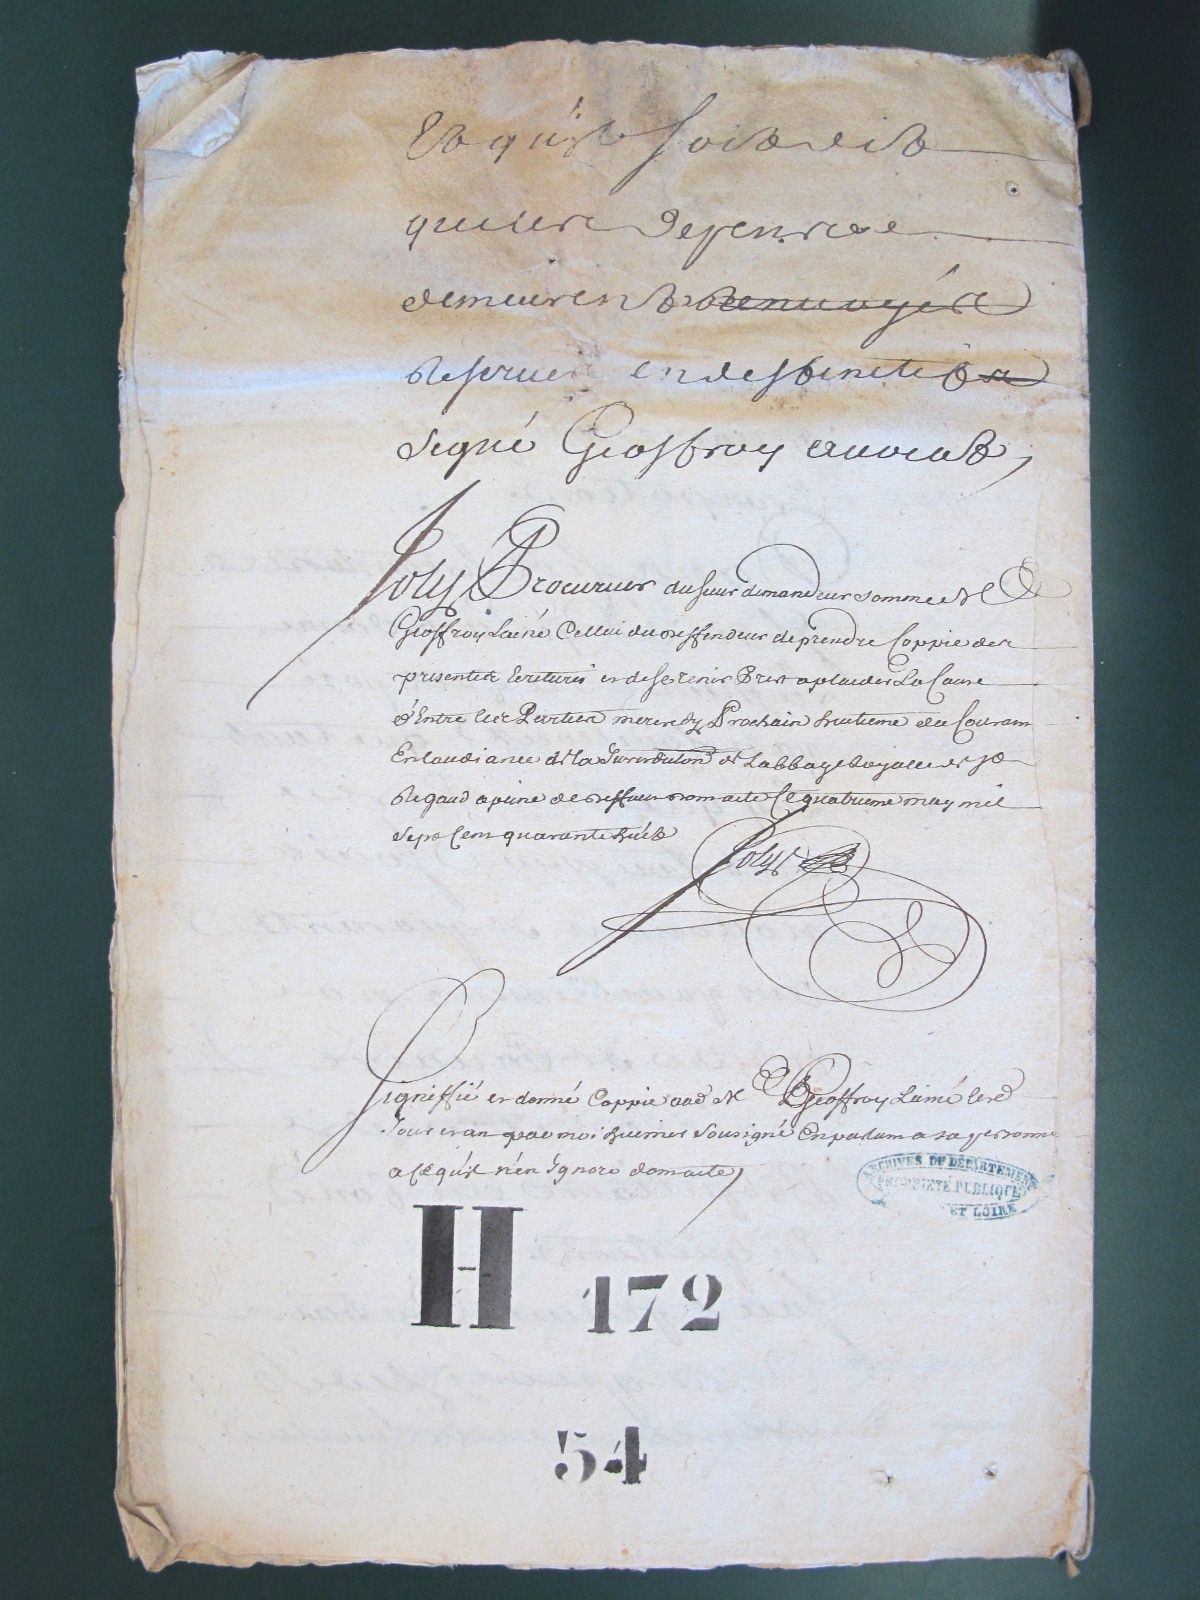 Et qu'il soit dit
que les depens
demeurent renvoyés
reservé en desfinitif
signé Geoffroy avocat,
Joly Procureur du sieur demandeur somme M.e
Geoffroy Lainé Cellui du deffendeur de prendre Coppie des
presentes Ecritures et de se tenir Prest a plaider La Cause
d'Entre les Parties mercredy Prochain huitieme du Couran
En laudiance de la Jurisdition de Labbaye Royalle de st
Rigaud a peine de deffaut dom acte Ce quatrieme may mil
sept Cent quarante huit
Joly
Signiffié et donné Coppie aud M.e Geoffroy Lainé lesd
Jour et an par moi huissier Sousigné En parlant a sa personne
a Ce qu'il n'en Ignore dom acte,
ARCHIVES DU DÉPARTEMENT
PROPRIÉTÉ PUBLIQUE
ET LOIRE
H 172
54